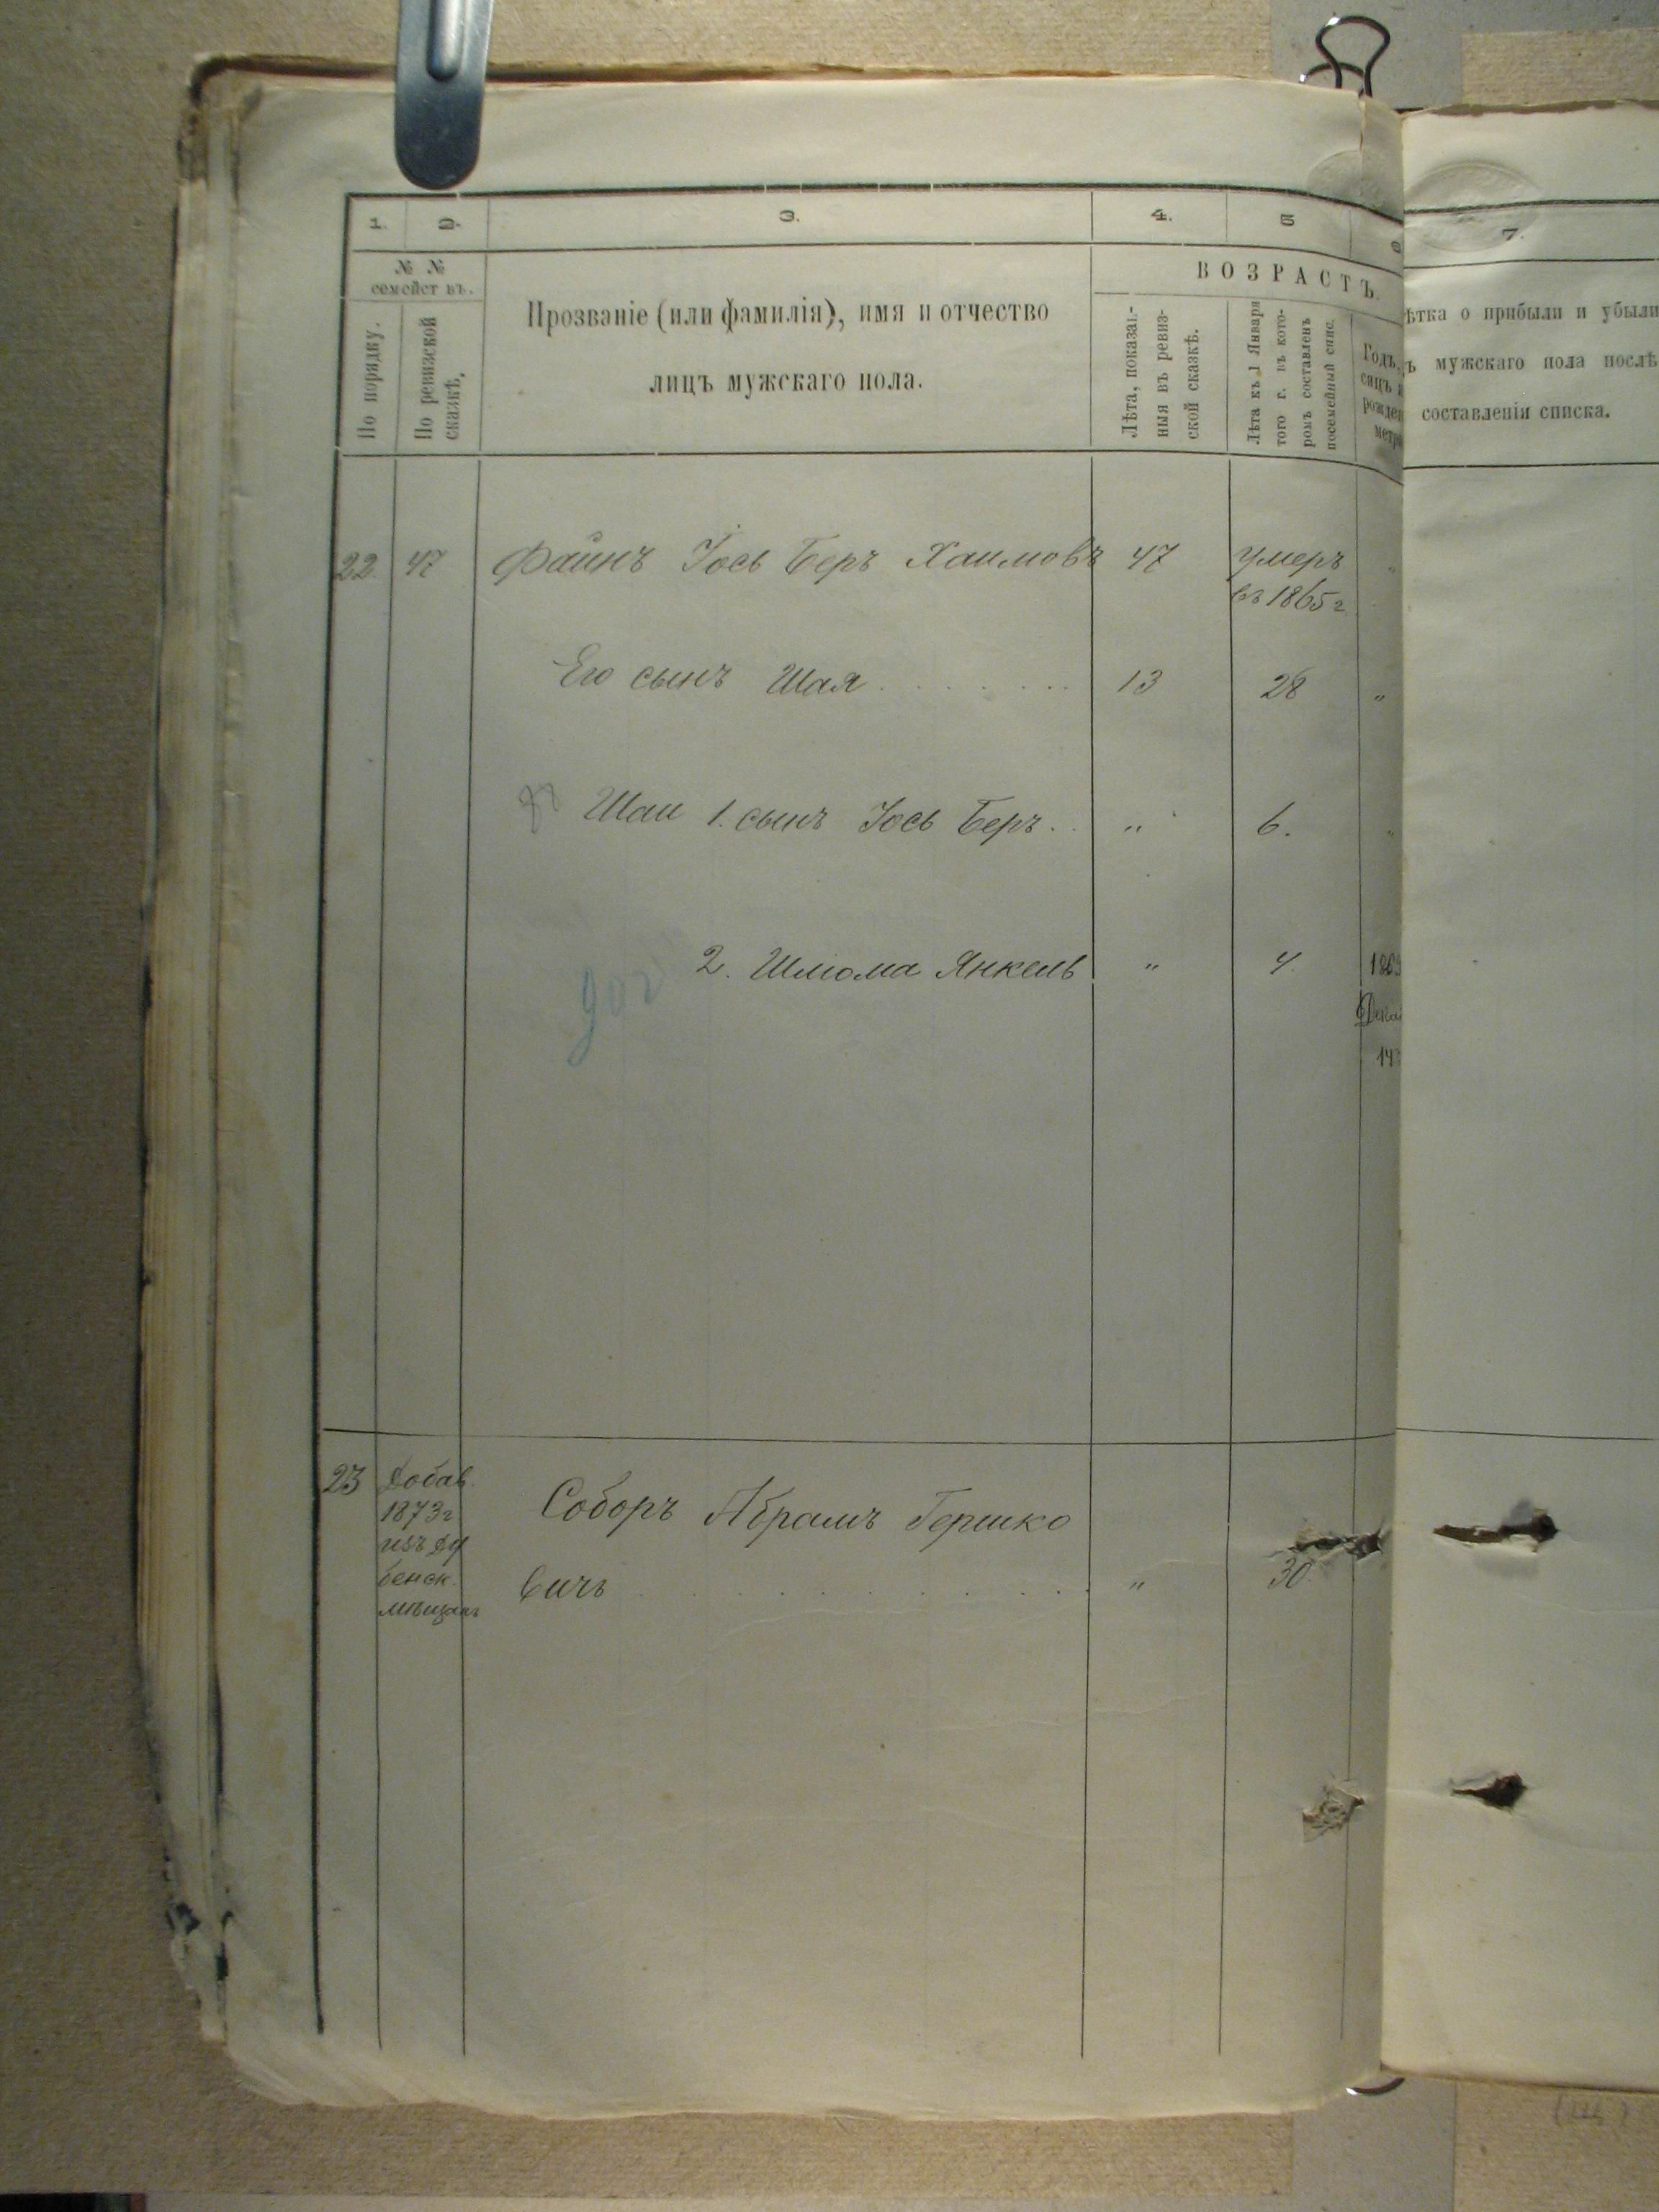 1. 2. 3. 4. 5 6 7.
№ № семейст въ.
По порядку.
По ревизской сказкѣ,
Прозваніе (или фамилія), имя и отчество
лицъ мужскаго пола.
ВОЗРАСТЪ.
Лѣта, показан-
ныя въ ревиз-
ской сказкѣ.
Лѣта къ 1 Января
того г. въ кото-
ромъ составленъ
посемейный спис.
Годъ,
сацъ и
рожден
метри
ѣтка о прибыли и убыли
ъ мужскаго пола послѣ
составленія списка.
22 47 Файнъ Іось Беръ Хаимовъ 47 Умеръ
въ 1865 г
Его сынъ Шая . . . . . . . 13 28 "
Шаи 1. сынъ Іось Беръ . . " 6. "
2. Шлома Янкель " 4. 1869
Дека
14
23 Добав.
1873 г
изъ Ду
бенск.
мѣщанъ
Соборъ Абрамъ Гершко
вичъ . . . . . . . . . . " 30.